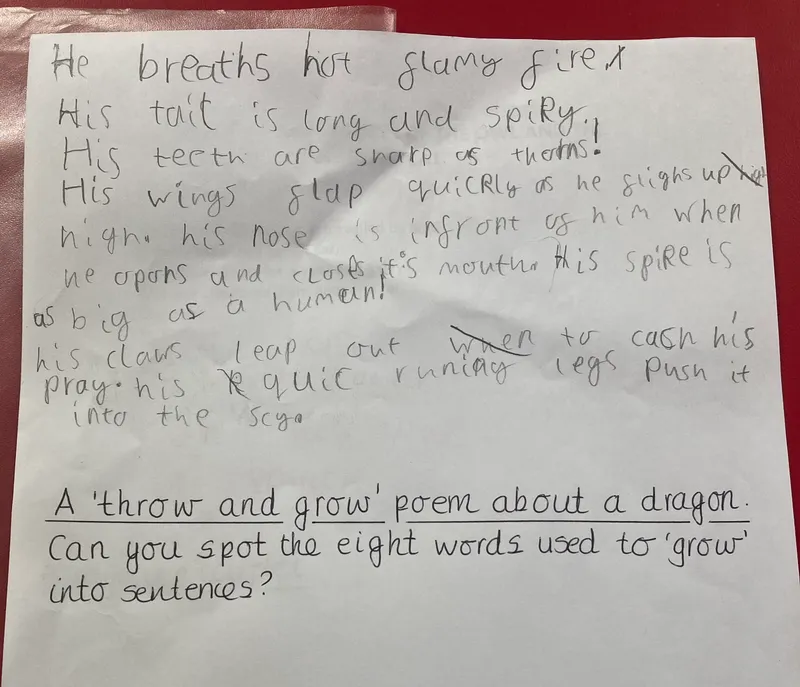 He breaths hot flamy fire.
His tail is long and spiky.
His teeth are sharp as thorns!
His wings flap quickly as he flighs up
high. his nose is infront of him when
he opons and closes it's mouth. this spike is
as big as a human!
his claws leap out when to cach his
pray. his quic runing legs push it
into the scy.
A 'throw and grow' poem about a dragon.
Can you spot the eight words used to 'grow'
into sentences?